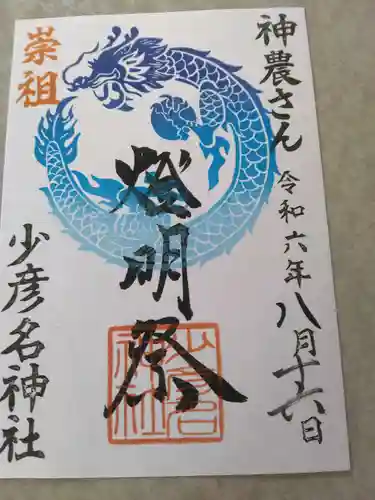 神農さん
令和六年八月十六日
崇祖
燈明祭
少彦名神社
少彦名神社